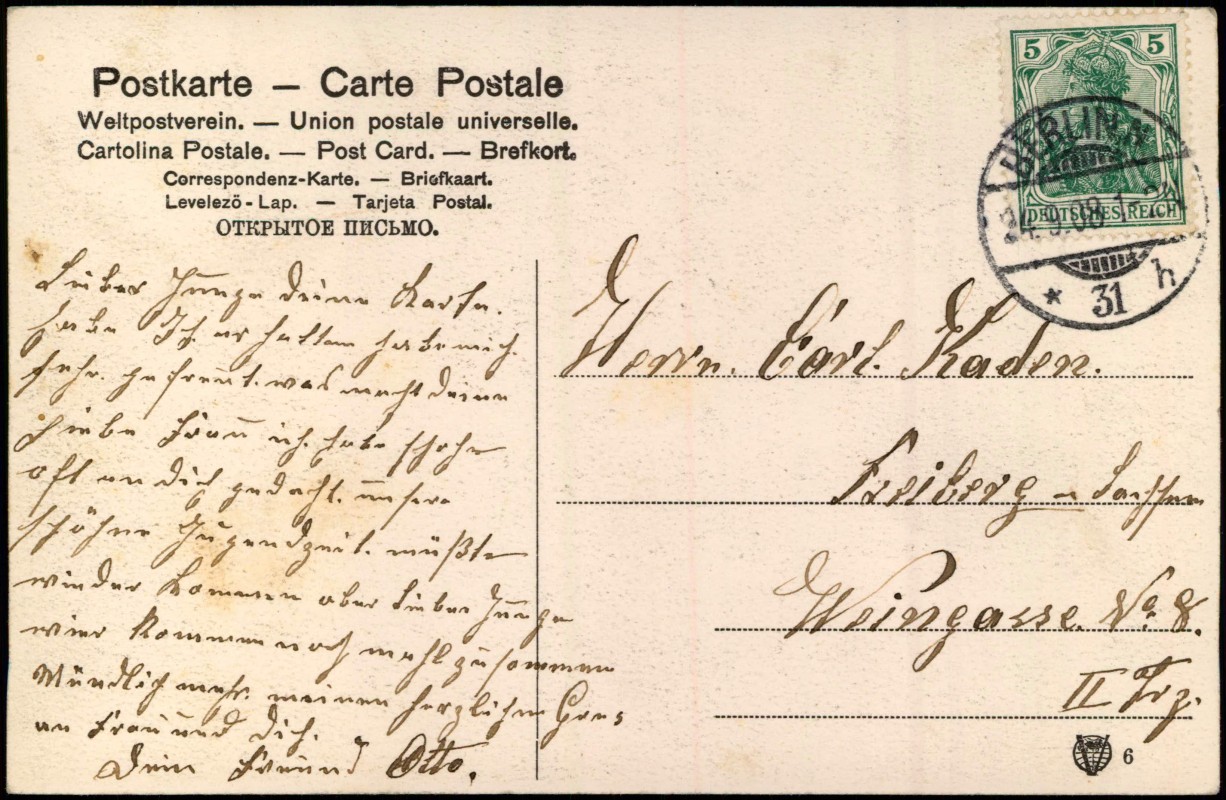 Postkarte — Carte Postale
Weltpostverein. — Union postale universelle.
Cartolina Postale. — Post Card. — Brefkort.
Correspondenz-Karte. — Briefkaart.
Levelezö-Lap. — Tarjeta Postal.
ОТКРЫТОЕ ПИСЬМО.
5 5
DEUTSCHES REICH
BERLIN N
24.9.09. 1-2N
* 31 h
Lieber Junge deine Karte.
habe Ich erhalten habe mich
sehr. gefreut. was macht deine
liebe Frau ich. habe schohn
oft an dich gedacht. unsere
schöhne Jugendzeit. müßte
wieder kommen aber lieber Junge
wier kommen noch mahl zusammen
Mündlich mehr. meinen herzlichen Grus
an Frau und dich.
Dein Freund Otto.
Herrn. Carl. Kaden.
Freiberg Sachsen
Weingasse. No. 8.
II Trz.
6